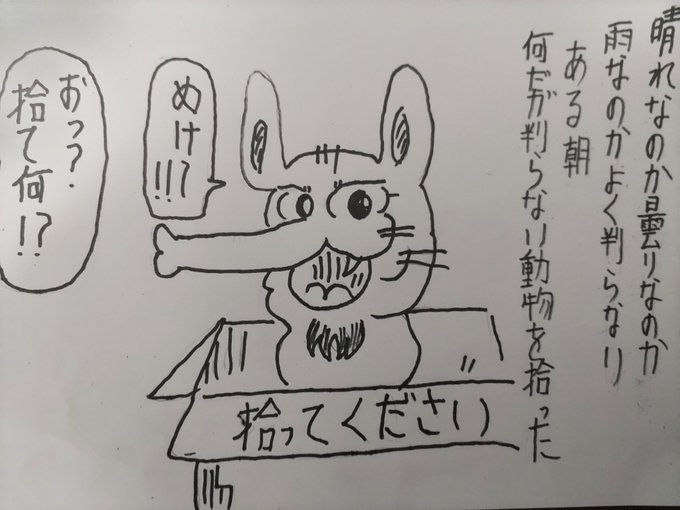 晴れなのか曇りなのか
雨なのかよく判らない
ある朝
何だが判らない動物を拾った
めけ?!!
おっ?
捨て何!?
拾ってください